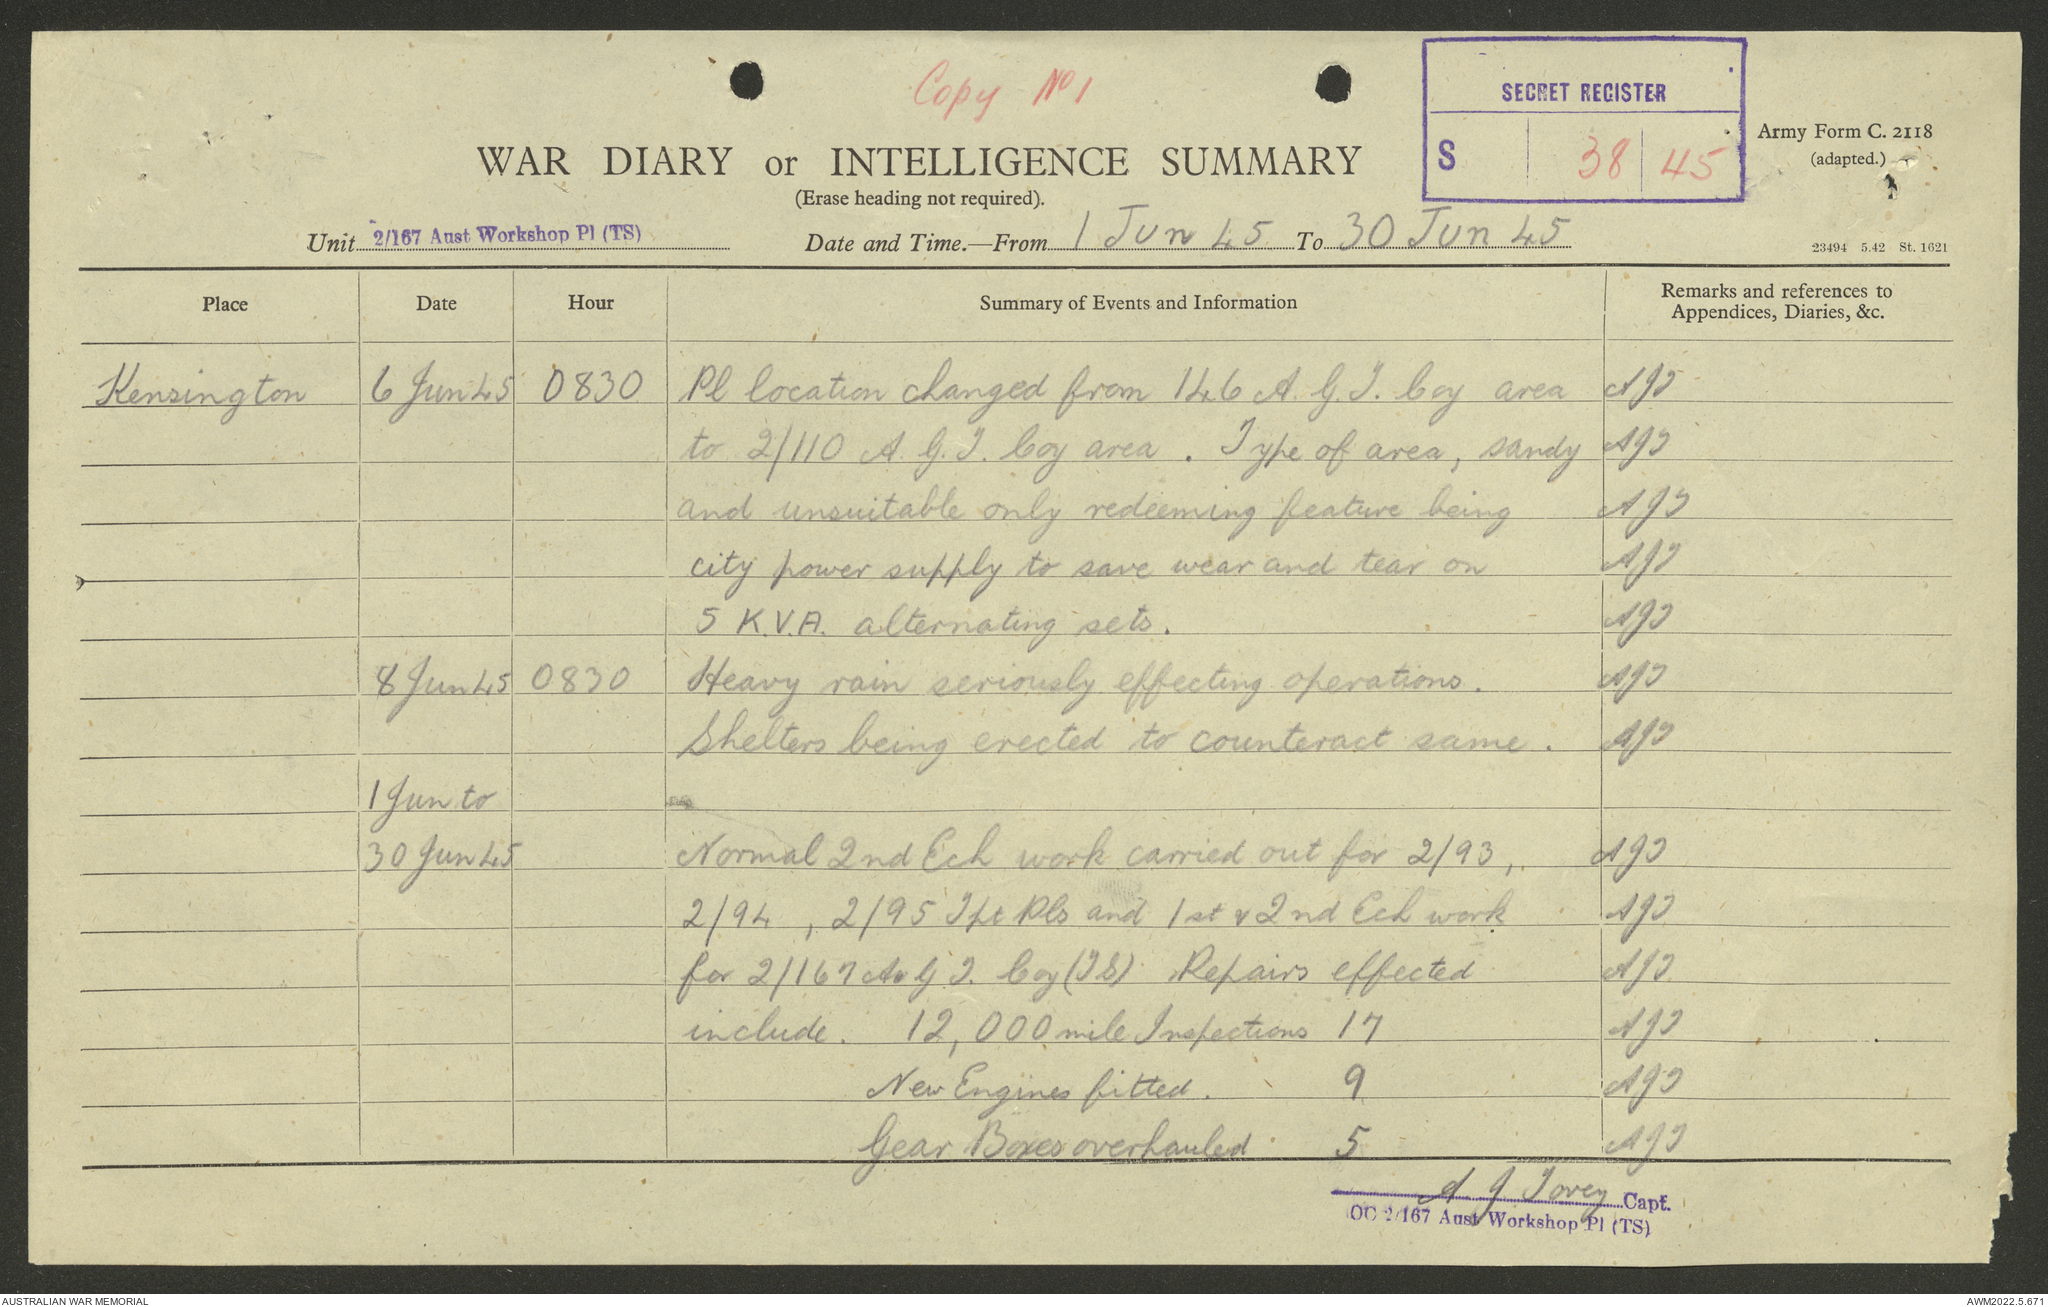 Copy No 1
SECRET REGISTER
S 38 45
Army Form C. 2118
(adapted.)
WAR DIARY or INTELLIGENCE SUMMARY
(Erase heading not required).
Unit 2/167 Aust Workshop Pl (TS) Date and Time.—From 1 Jun 45 To 30 Jun 45
23494 5.42 St. 1621
Place Date Hour Summary of Events and Information Remarks and references to
Appendices, Diaries, &c.
Kensington 6 Jun 45 0830 Pl location changed from 146 A.G.T. Coy area AJT
to 2/110 A.G.T. Coy area. Type of area, sandy AJT
and unsuitable only redeeming feature being AJT
city power supply to save wear and tear on AJT
5 K.V.A. alternating sets. AJT
8 Jun 45 0830 Heavy rain seriously effecting operations. AJT
Shelters being erected to counteract same. AJT
1 Jun to
30 Jun 45 Normal 2nd Ech work carried out for 2/93, AJT
2/94, 2/95 Tpt Pls and 1st & 2nd Ech work AJT
for 2/167 A.G.T. Coy (TS) Repairs effected AJT
include. 12,000 mile Inspections 17 AJT
New Engines fitted. 9 AJT
Gear Boxes overhauled 5 AJT
A J Tovey Capt.
OC 2/167 Aust Workshop Pl (TS)
AUSTRALIAN WAR MEMORIAL
AWM2022.5.671